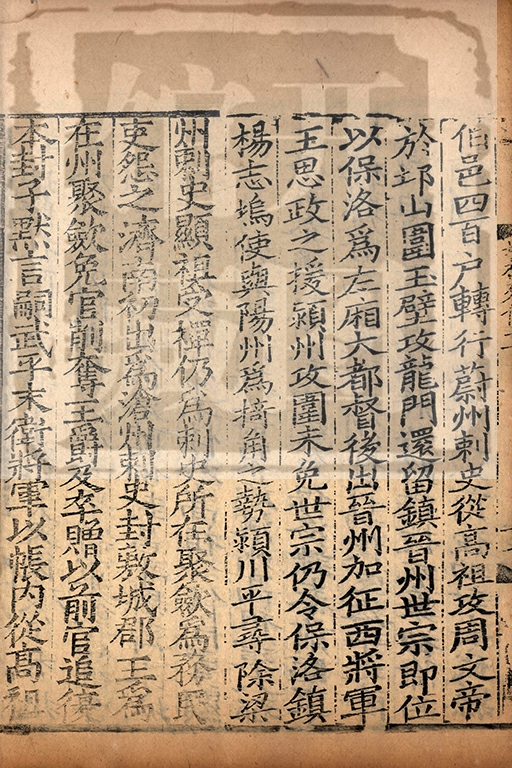 伯邑四百户轉行蔚州刺史從高祖攻周文帝
於邙山圍玉壁攻龍門還留鎮晉州世宗即位
以保洛爲左廂大都督後出晉州加征西將軍
王思政之援潁州攻圍未免世宗仍令保洛鎮
楊志塢使與陽州爲掎角之勢潁川平尋除梁
州刺史顯祖受禪仍爲刺史所在聚斂爲務民
吏怨之濟南初出爲滄州刺史封敷城郡王爲
在州聚斂免官削奪王爵及卒贈以前官追復
本封子默言嗣武平末衛將軍以帳内從高祖